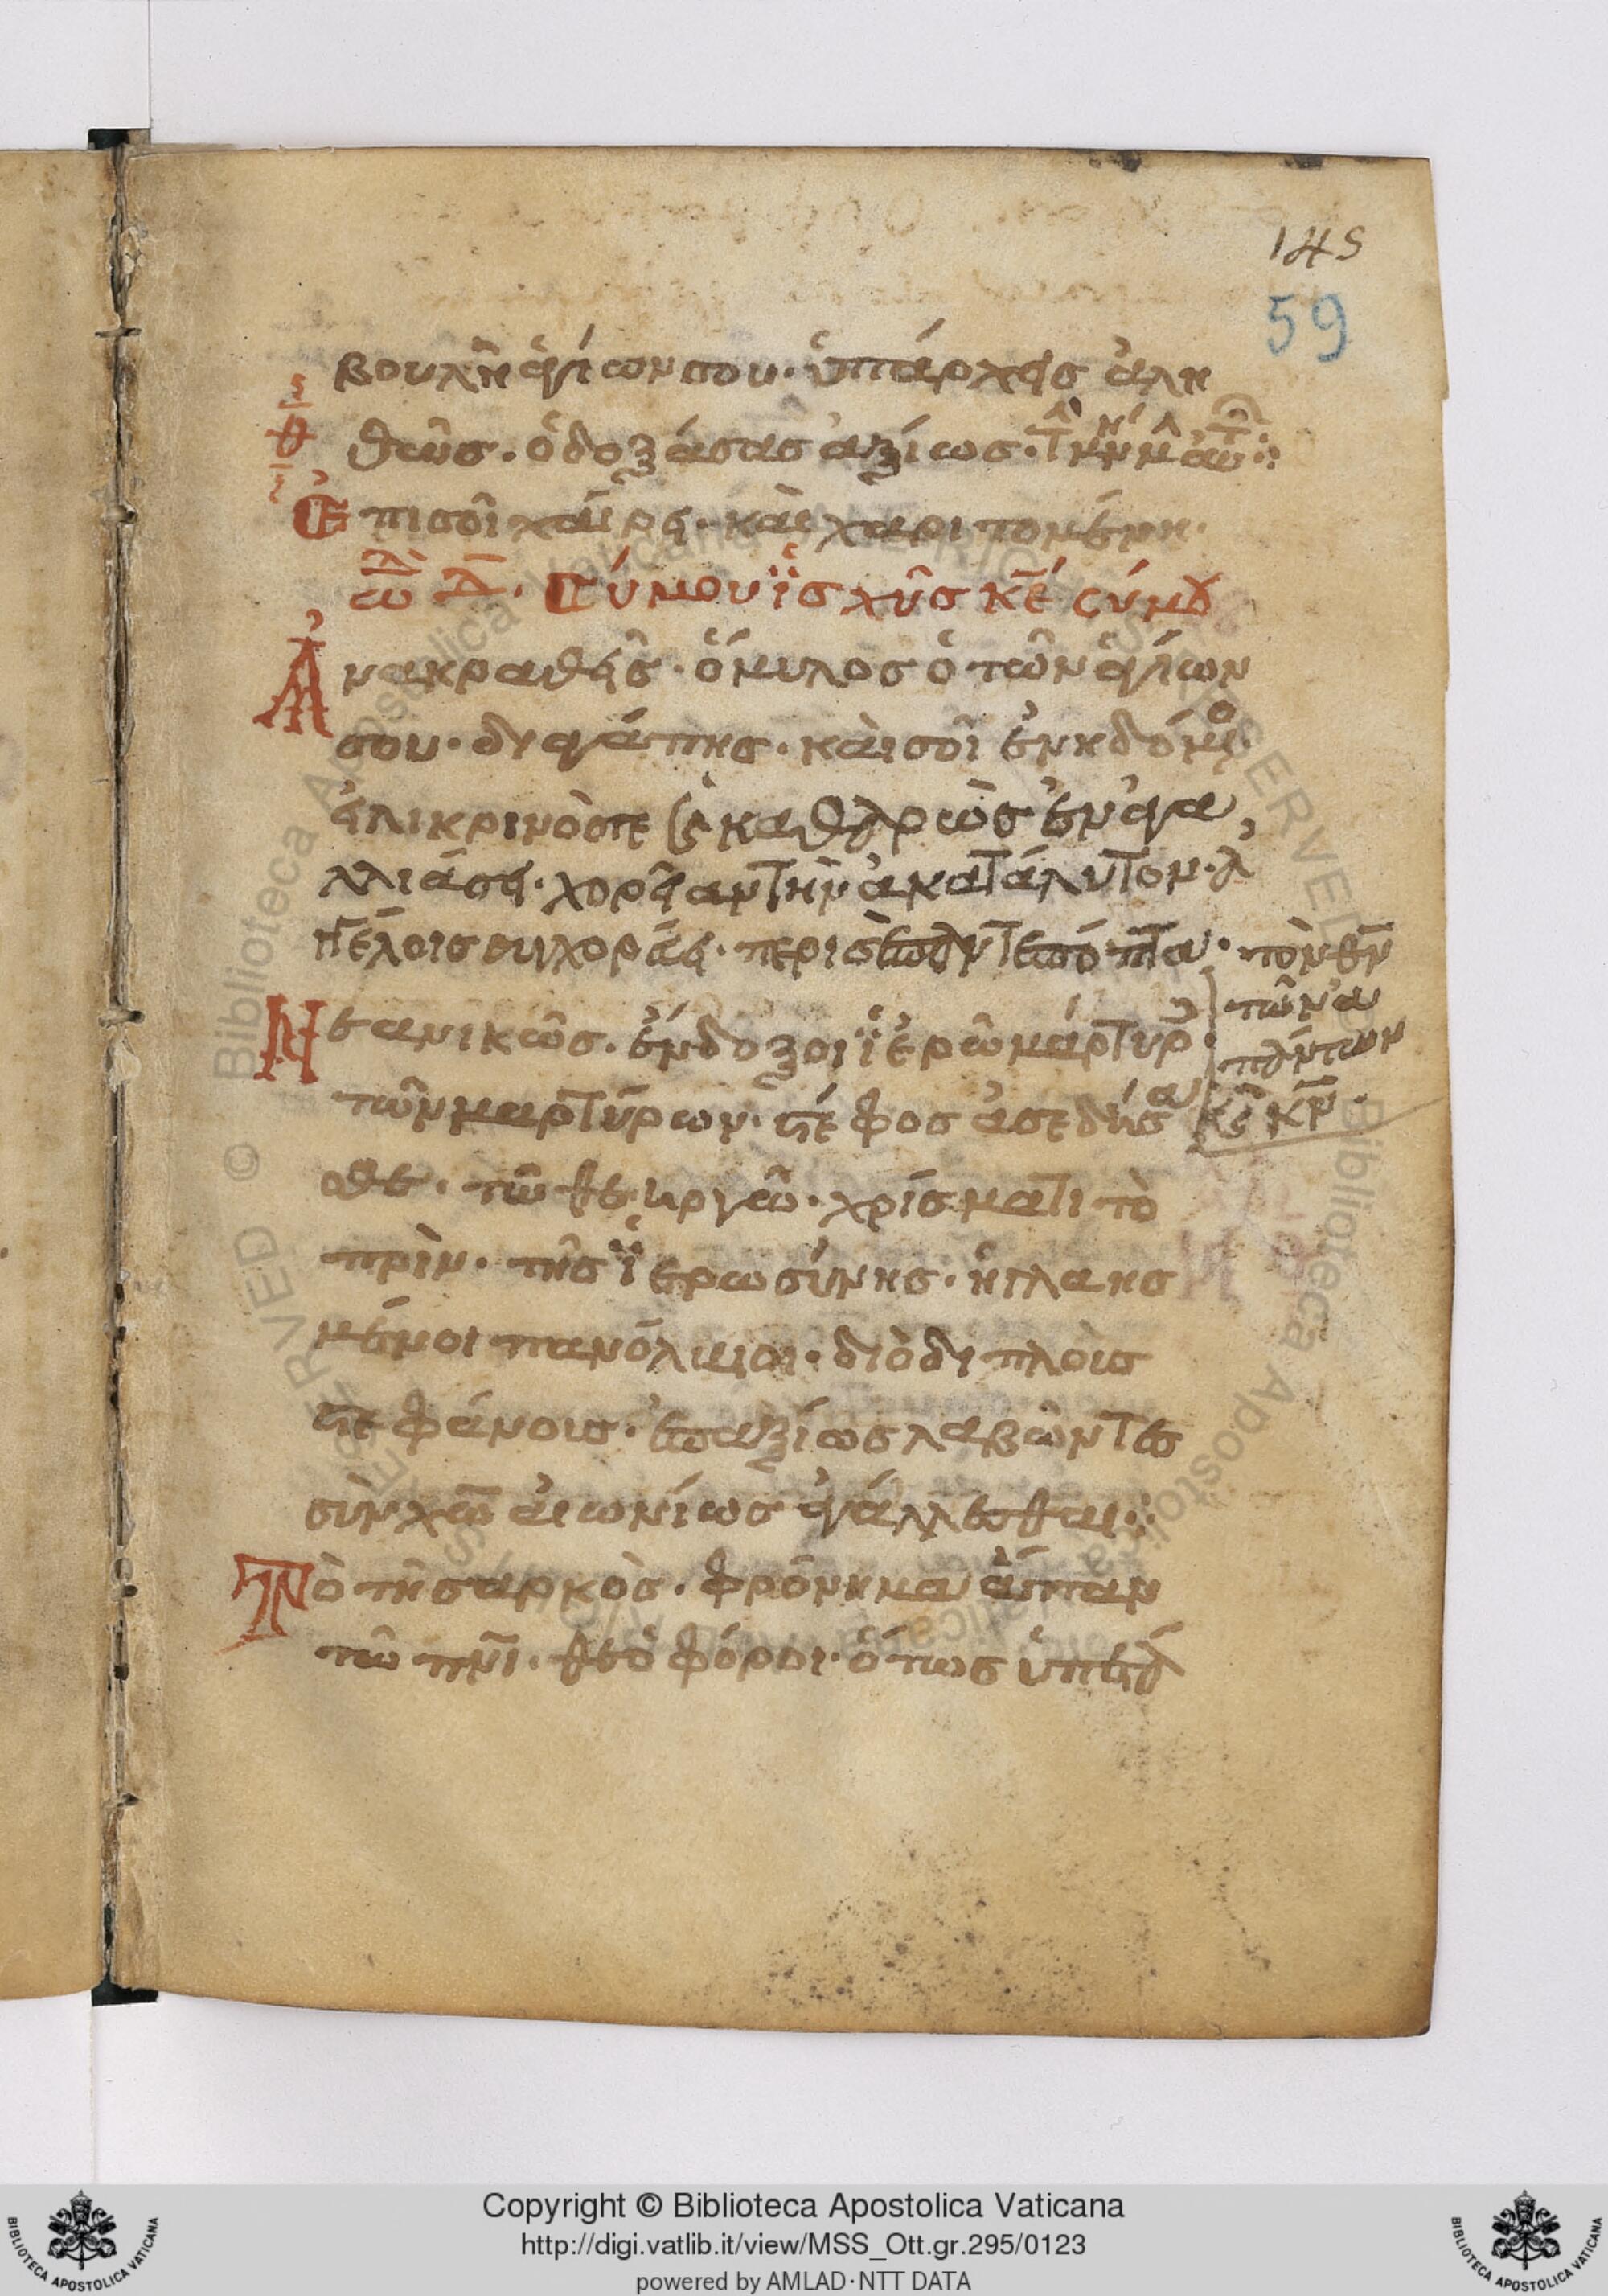 145
59
βουλὴ ἁγίων σου· ὑπάρχεις ἀλη
θῶς· ὁ δοξάσας ἀξίως·
Ἐπι σοὶ χαίρει· καὶ χαριτομένη·
ὠ δ· Σύ μου ἰσχῦς κε σύ μου
Ἀνακραθεῖς· ὅμυλος ὁ τῶν ἁγίων
σου· δι ἀγάπης· καὶ σοὶ ἑνηδόμε
εἰλικρινὸς τε καθαρὼς ἐν ἀγα
λλιάσει· χορείαν τὴν ἀκατάλυτον·
πέλοις συγχορεύει· τὸν θν
τῶν ἁ
πάντων
καὶ κν·
Νεανικῶς· ἔνδοξοι ἱερωμάρτυρ
τῶν μαρτύρων· στέφος ἀσεδησα
σθε· τῶ θεηργῶ· χρίσματι τὸ
πρὶν· τῆς ἱερωσύνης· ἠγλαησ
μένοι πανόλβιοι· διὸ διπλοὶς
στεφάνοις· ἐπαξίως λαβὼντες
σὺν χω αἰωνίως ἀγάλλεσθαι:
Τὸ τῆς σαρκὸς· φρόνημα ἅπαν
τῶ πνι· θεοφόροι· ὅπως ὑπετα
Copyright © Biblioteca Apostolica Vaticana
http://digi.vatlib.it/view/MSS_Ott.gr.295/0123
powered by AMLAD·NTT DATA
BIBLIOTECA APOSTOLICA VATICANA
BIBLIOTECA APOSTOLICA VATICANA